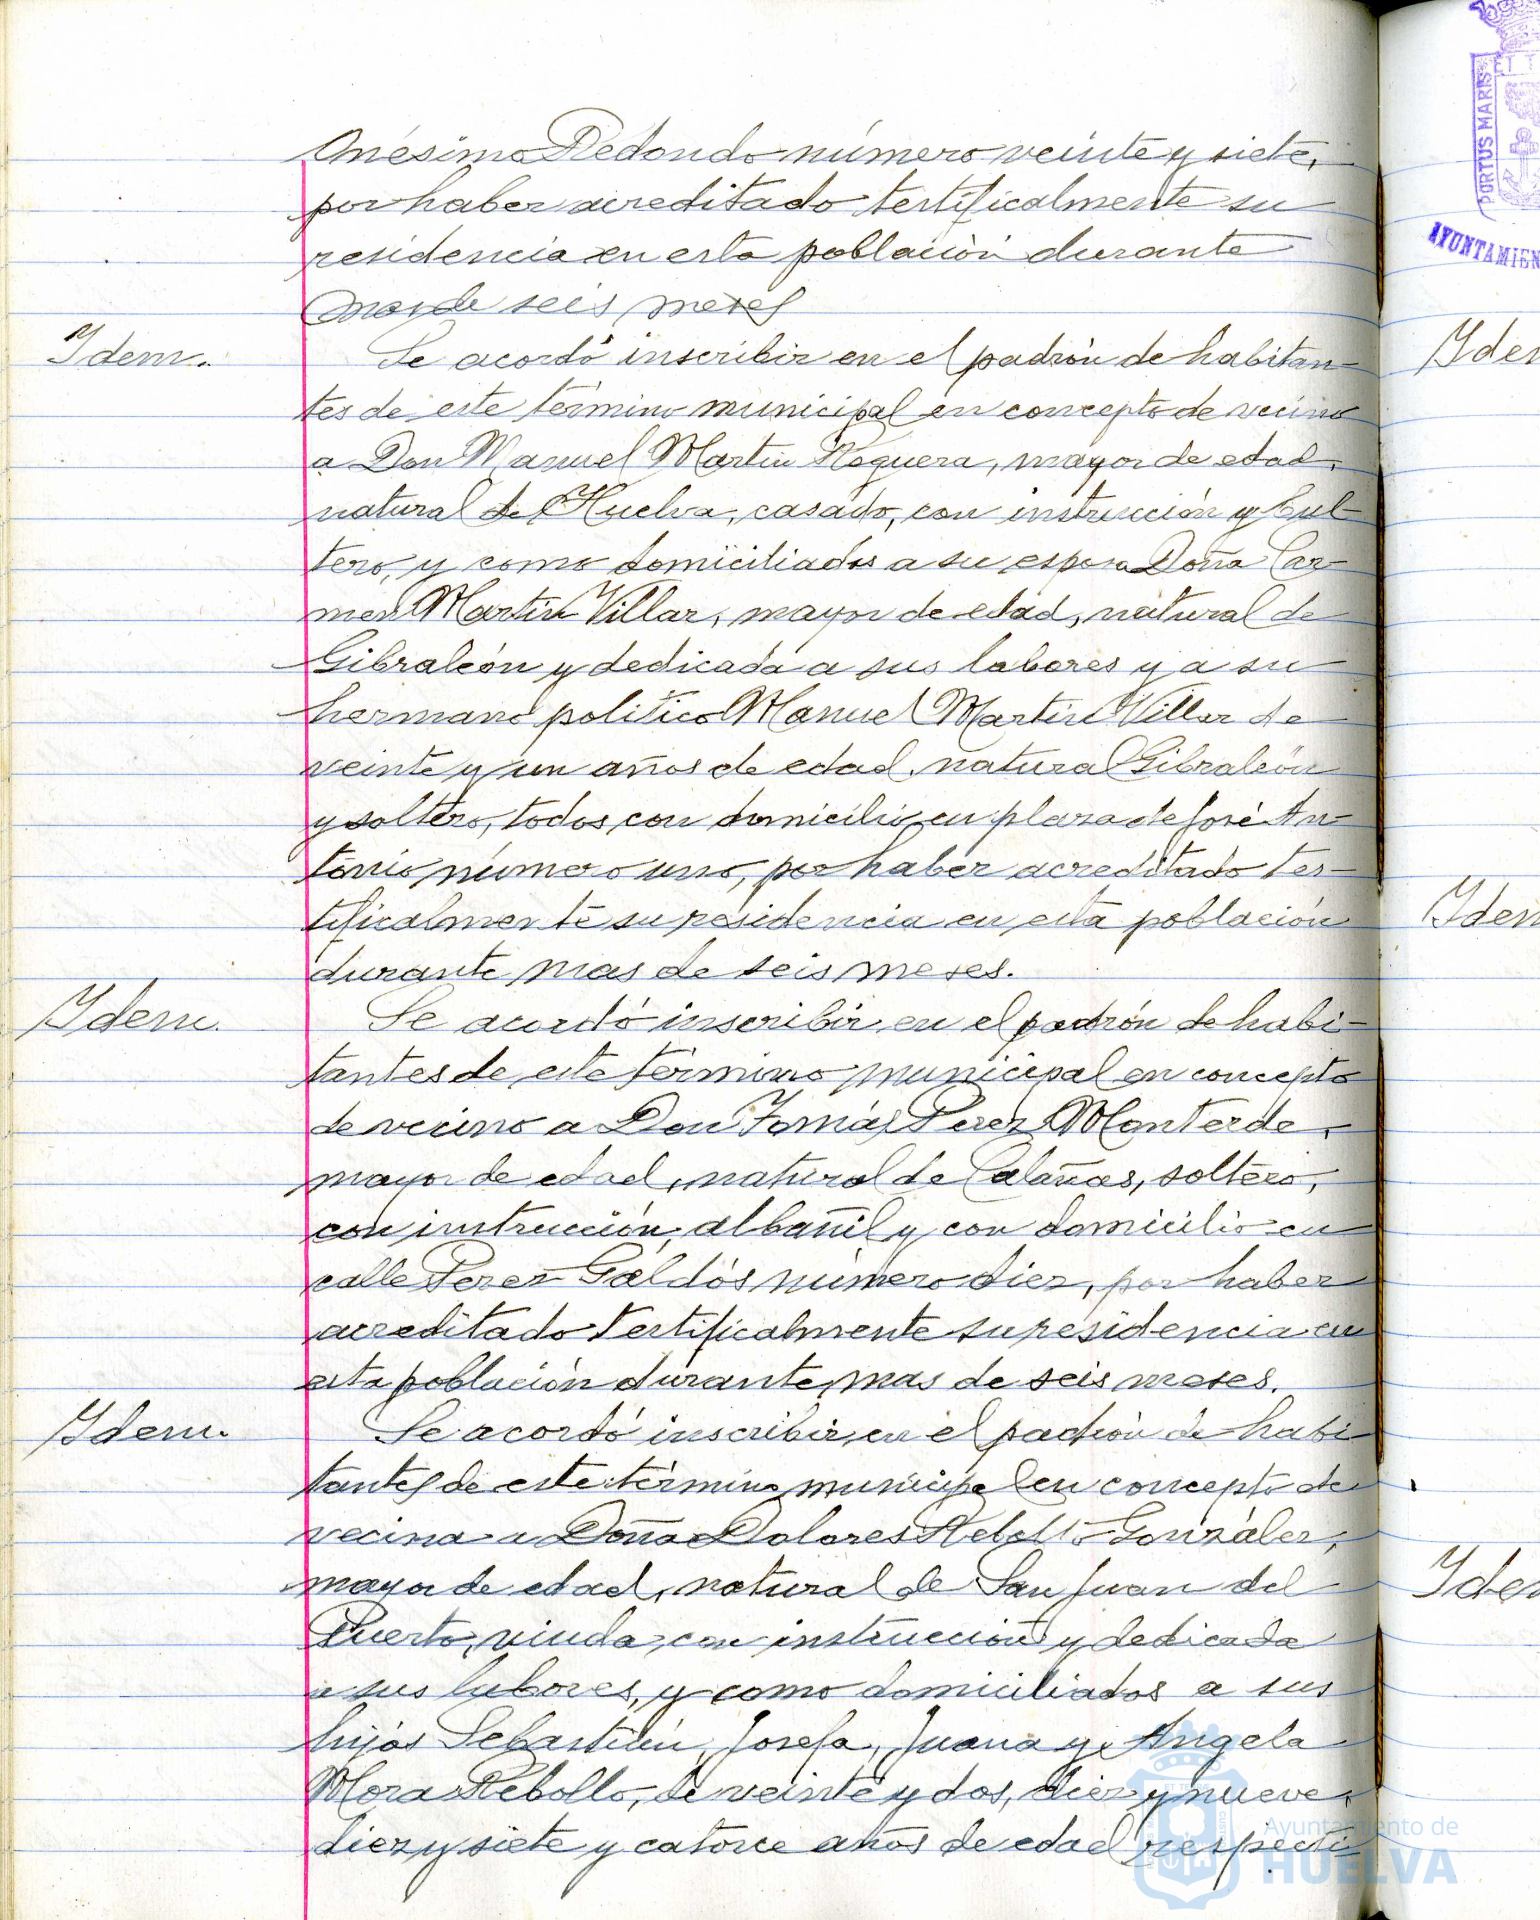 Onésimo Redondo número veinte y siete,
por haber acreditado testificalmente su
residencia en esta población durante
mas de seis meses
Idem.
Se acordó inscribir en el padrón de habitan-
tes de este término municipal en concepto de vecino
a Don Manuel Martin Noguera, mayor de edad,
natural de Huelva, casado, con instrucción y
tero, y como domiciliados a su esposa Doña Car-
men Martin Villar, mayor de edad, natural de
Gibraleón y dedicada a sus labores y a su
hermano politico Manuel Martin Villar de
veinte y un años de edad, natural Gibraleón
y soltero, todos con domicilio en plaza de José An-
tonio número uno, por haber acreditado tes-
tificalmente su residencia en esta población
durante mas de seis meses.
Idem.
Se acordó inscribir en el padrón de habi-
tantes de este término municipal en concepto
de vecino a Don Tomás Perez Monterde,
mayor de edad, natural de Calañas, soltero,
con instrucción, albañil y con domicilio en
calle Perez Galdós número diez, por haber
acreditado testificalmente su residencia en
esta población durante mas de seis meses.
Idem.
Se acordó inscribir en el padrón de habi-
tantes de este término municipal en concepto de
vecina a Doña Dolores Rebollo González,
mayor de edad, natural de San Juan del
Puerto, viuda, con instrucción y dedicada
a sus labores, y como domiciliados a sus
hijos Sebastián, Josefa, Juana y Angela
Mora Rebollo, de veinte y dos, diez y nueve,
diez y siete y catorce años de edad respecti-
PORTUS MARIS
ET T
AYUNTAMIEN
Idem
Idem
Idem
Ayuntamiento de
HUELVA